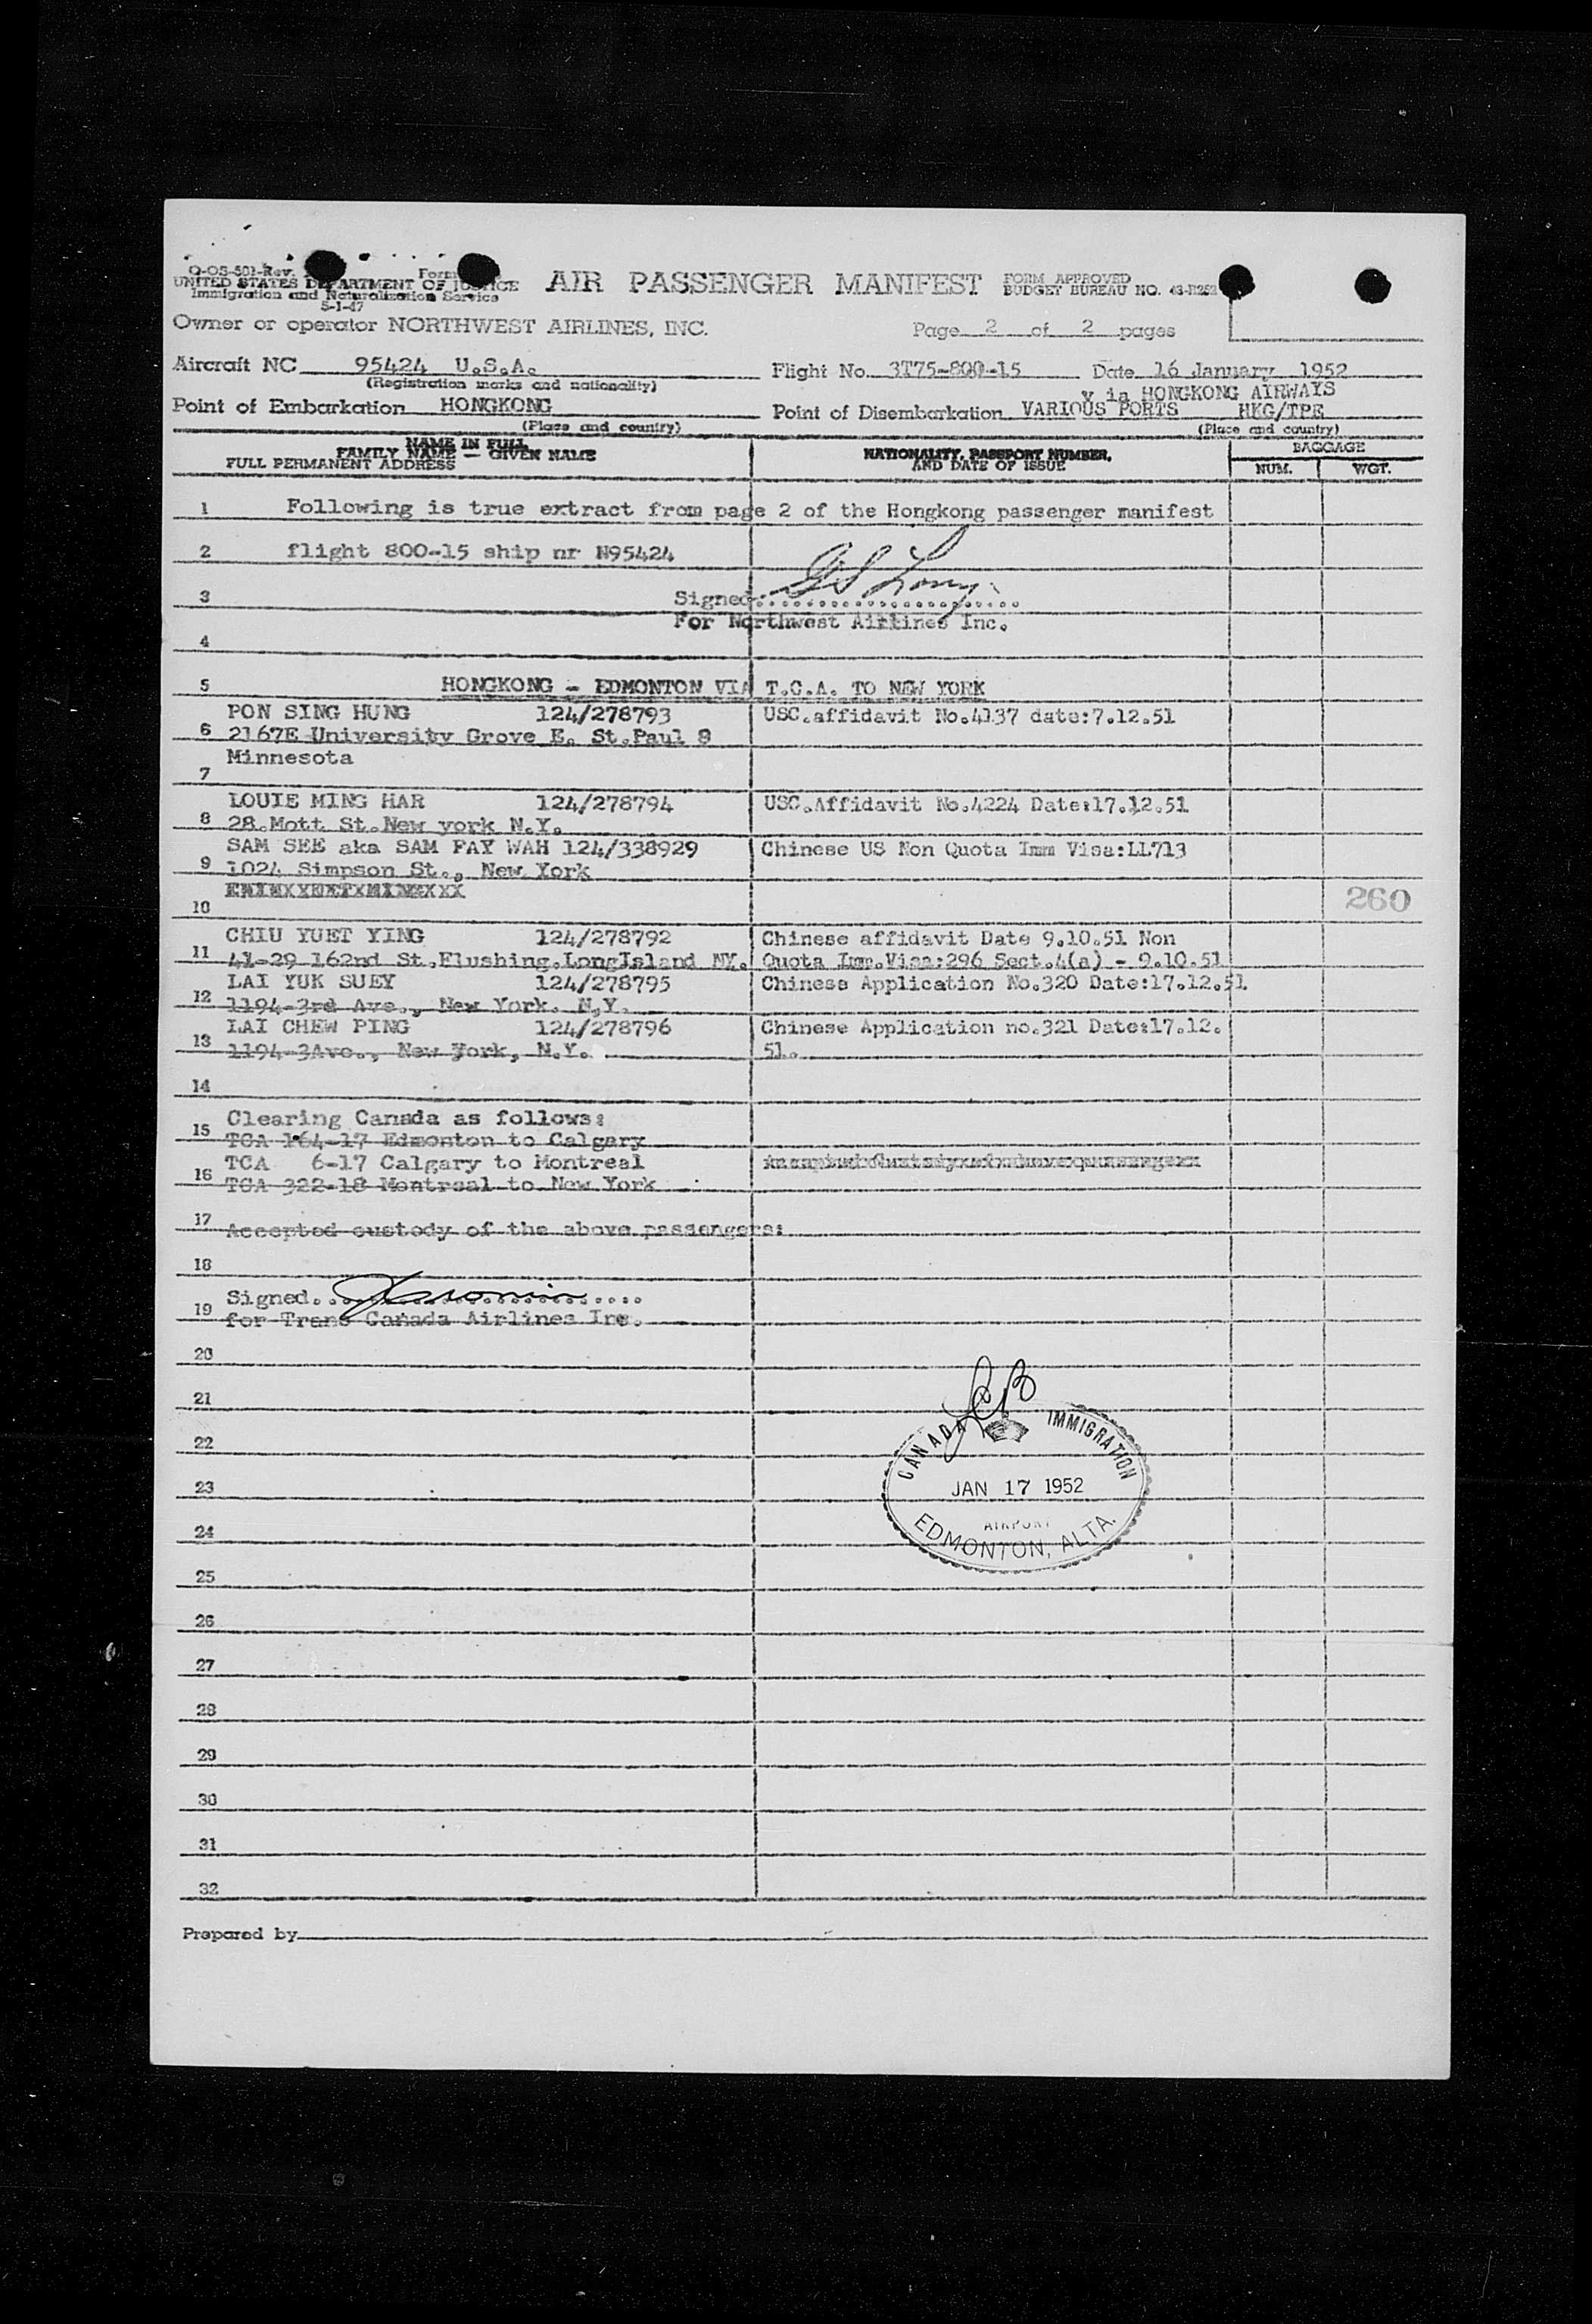 O-OS-501-Rev. Form
UNITED STATES DEPARTMENT OF JUSTICE
Immigration and Naturalization Service
5-1-47
AIR PASSENGER MANIFEST
FORM APPROVED
BUDGET BUREAU NO.
Owner or operator NORTHWEST AIRLINES, INC.
Page 2 of 2 pages
Aircraft NC 95424 U.S.A.
(Registration marks and nationality)
Flight No. 3T75-800-15 Date 16 January 1952
v ia HONGKONG AIRWAYS
Point of Embarkation HONGKONG
(Place and country)
Point of Disembarkation VARIOUS PORTS HKG/TPE
(Place and country)
NAME IN FULL
FAMILY NAME — GIVEN NAME
FULL PERMANENT ADDRESS
NATIONALITY, PASSPORT NUMBER,
AND DATE OF ISSUE
BAGGAGE
NUM. WGT.
1 Following is true extract from page 2 of the Hongkong passenger manifest
2 flight 800-15 ship nr N95424
3 Signed
For Northwest Airlines Inc.
4
5 HONGKONG - EDMONTON VIA T.C.A. TO NEW YORK
PON SING HUNG 124/278793 USC.affidavit No.4137 date:7.12.51
6 2167E University Grove E. St.Paul 8
Minnesota
7
LOUIE MING HAR 124/278794 USC.Affidavit No.4224 Date:17.12.51
8 28.Mott St.New york N.Y.
SAM SEE aka SAM FAY WAH 124/338929 Chinese US Non Quota Imm Visa:LL713
9 1024 Simpson St., New York
10 260
CHIU YUET YING 124/278792 Chinese affidavit Date 9.10.51 Non
11 41-29 162nd St.Flushing.LongIsland NY. Quota Imm.Visa:296 Sect.4(a) - 9.10.51
LAI YUK SUEY 124/278795 Chinese Application No.320 Date:17.12.51
12 1194-3rd Ave., New York. N.Y.
LAI CHEW PING 124/278796 Chinese Application no.321 Date:17.12.
13 1194-3Ave., New York, N.Y. 51.
14
Clearing Canada as follows:
15 TCA 164-17 Edmonton to Calgary
TCA 6-17 Calgary to Montreal
16 TCA 322-18 Montreal to New York
17 Accepted custody of the above passengers:
18
Signed
19 for Trans Canada Airlines Inc.
20
21
22
23
24
25
26
27
28
29
30
31
32
CANADA IMMIGRATION
JAN 17 1952
AIRPORT
EDMONTON, ALTA.
Prepared by